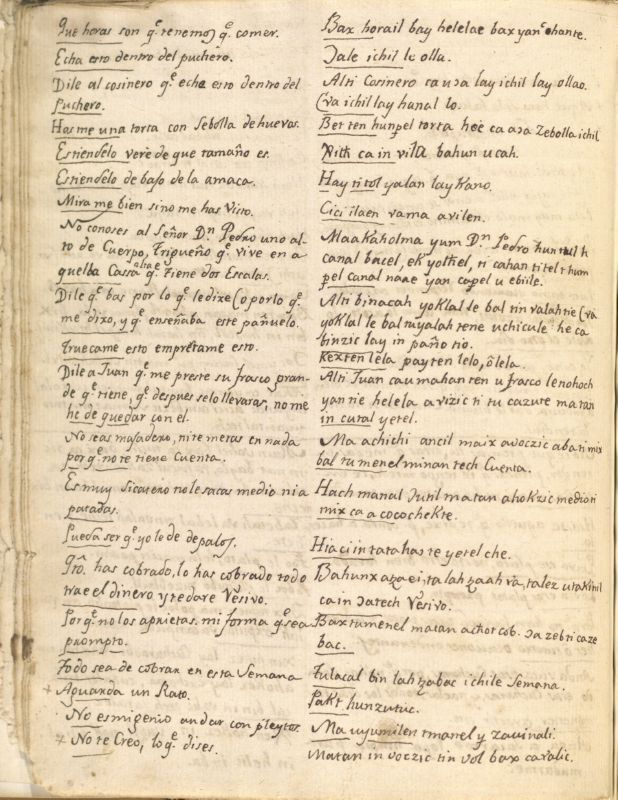 Que horas son q.e tenemos q.e comer.
Echa esto dentro del puchero.
Dile al cosinero q.e eche esto dentro del
Puchero.
Hasme una torta con Sebolla de huevos.
Estiendelo veré de que tamaño es.
Estiendelo de bajo de la amaca.
Mirame bien sino me has Visto.
No conoses al Señor D.n Pedro uno al-
to de Cuerpo, Trigueño q.e vive en a
quella Cassa alta q.e tiene dos Escalas.
Dile q.e bas por lo q.e le dixe (o por lo q.e
me dixo, y q.e enseñaba este pañuelo.
Truecame esto emprétame esto.
Dile a Juan q.e me preste su frasco gran-
de q.e tiene, q.e despues selo llevaras, no me
he de quedar con el.
No seas majadero, ni te metas en nada
por q.e no te tiene Cuenta.
Es muy Sicatero no le sacas medio ni a
patadas.
Pueda ser q.e yo le dé de palos.
Qto. has cobrado, lo has cobrado todo
trae el dinero y te daré Vesivo.
Por q.e no los aprietas. mi forma q.e sea
prompto.
Todo sea de cobrar en esta Semana
Aguarda un Rato.
No es mi genio andar con pleytos.
No te Creo, lo q.e dises.
Bax horail bay helelae bax yan.e ohante.
Jale ichil le olla.
Alti Cosinero ca u ɔa lay ichil lay ollao.
(va ichil lay hanal lo.
Betten hunpel torta hée ca aɔa Zebolla ichil
Nith ca in vila bahun ucah.
Hay ti tol yalan lay Kano.
Cici ilaen va ma avilen.
Maa Kaholma yum D.n Pedro hun tul h
canal bacel, ek yothel, ti cahan ti tel t hum
pel canal naae yan capel u ebile.
Alti binacah yoklal le bal tin valah tie (va
yoklal le bal tuyalah tene uchicule he ca
tinzic lay in paño tio.
Kexten lela payten lelo, ó lela.
Alti Juan cau mahanten u frasco lenohoch
yantie helela avizic ti tu cazute matan
in cutal yetel.
Ma achichi ancil maix a uoczic aba ti mix
bal tumenel minan tech Cuenta.
Hach manal Jutil matan ahokzic medio ti
mix ca a cocochekte.
Hi a ci in tatahaste yetel che.
Bahunx azaei, talah zaah va, talez u takinil
ca in ɔatech Vesivo.
Bax tumenel matan achot cob. ɔa zebti caze
bac.
Tulacal bin lah tzabac ichile Semana.
Pakt hunzutuc.
Ma uyumilen tmanel y zavinali.
Matan in voczic tin vol bax cavalic.